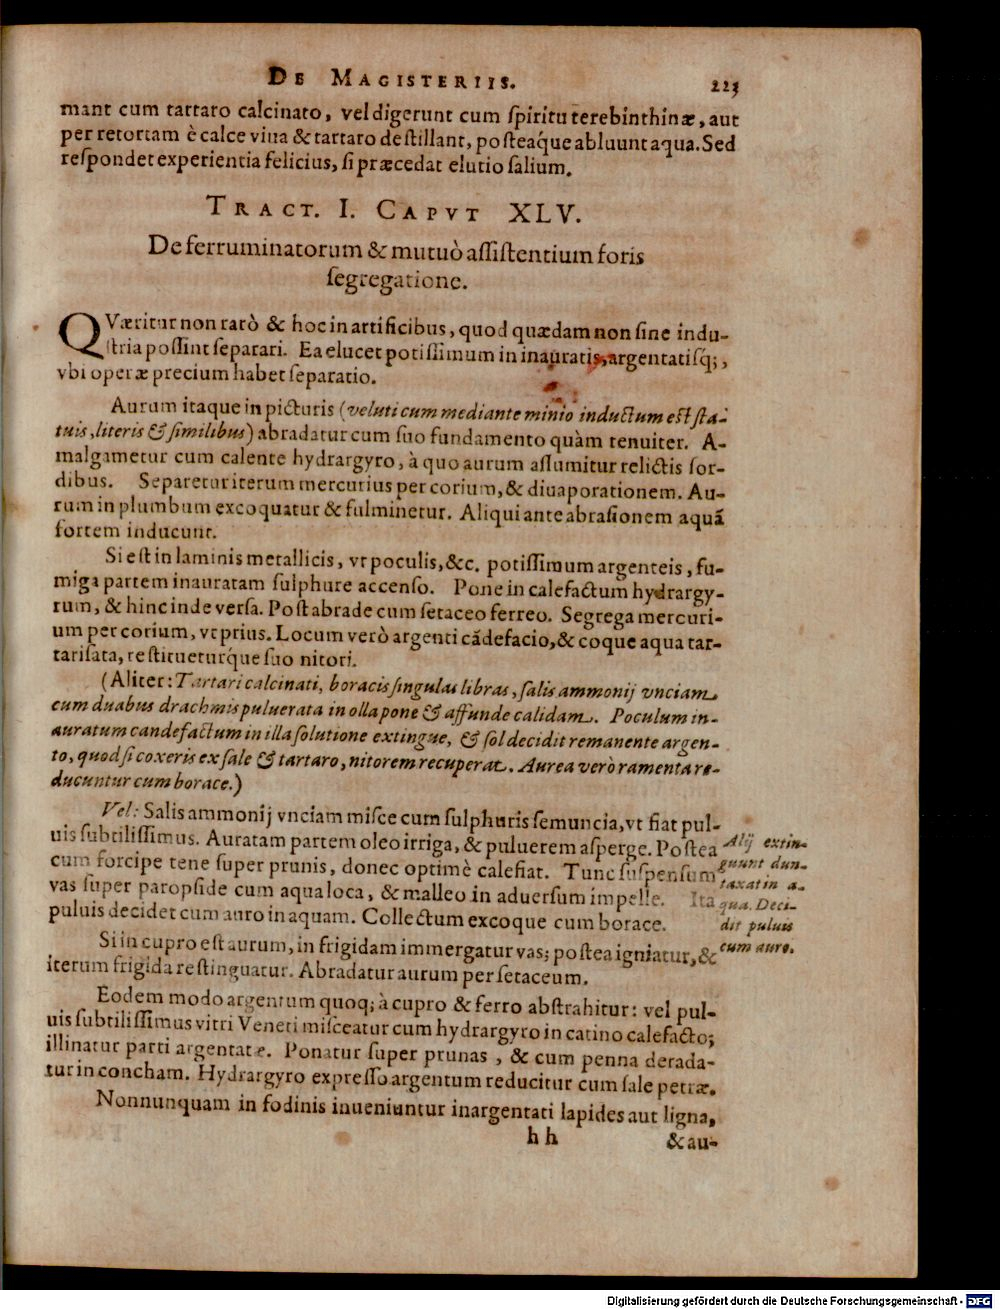 De Magisteriis. 223
mant cum tartaro calcinato, vel digerunt cum ſpiritu terebinthinæ, aut
per retortam è calce viua & tartaro deſtillant, poſteaq́ue abluunt aqua. Sed
reſpondet experientia felicius, ſi præcedat elutio ſalium.
Tract. I. Capvt XLV.
De ferruminatorum & mutuò aſſiſtentium foris
ſegregatione.
QVæritur non rarò & hoc in artificibus, quod quædam non ſine indu-
ſtria poſſint ſeparari. Ea elucet potiſſimum in inauratis, argentatiſq;,
vbi operæ precium habet ſeparatio.
Aurum itaque in picturis (veluti cum mediante minio inductum eſt ſta-
tuis, literis & ſimilibus) abradatur cum ſuo fundamento quàm tenuiter. A-
malgametur cum calente hydrargyro, à quo aurum aſſumitur relictis ſor-
dibus. Separetur iterum mercurius per corium, & diuaporationem. Au-
rum in plumbum excoquatur & fulminetur. Aliqui ante abraſionem aquã
fortem inducunt.
Si eſt in laminis metallicis, vt poculis, &c. potiſſimum argenteis, fu-
miga partem inauratam ſulphure accenſo. Pone in calefactum hydrargy-
rum, & hinc inde verſa. Poſt abrade cum ſetaceo ferreo. Segrega mercuri-
um per corium, vt prius. Locum verò argenti cãdefacio, & coque aqua tar-
tariſata, reſtitueturq́ue ſuo nitori.
(Aliter: Tartari calcinati, boracis ſingulas libras, ſalis ammonij vnciam
cum duabus drachmis puluerata in olla pone & affunde calidam. Poculum in-
auratum candefactum in illa ſolutione extingue, & ſol decidit remanente argen-
to, quod ſi coxeris ex ſale & tartaro, nitorem recuperat. Aurea verò ramenta re-
ducuntur cum borace.)
Vel: Salis ammonij vnciam miſce cum ſulphuris ſemuncia, vt fiat pul-
uis ſubtiliſſimus. Auratam partem oleo irriga, & puluerem aſperge. Poſtea
cum forcipe tene ſuper prunis, donec optimè calefiat. Tunc ſuſpenſum
vas ſuper paropſide cum aqua loca, & malleo in aduerſum impelle. Ita
puluis decidet cum auro in aquam. Collectum excoque cum borace.
Alij extin-
guunt dun-
taxat in a-
qua. Deci-
dit puluis
cum auro.
Si in cupro eſt aurum, in frigidam immergatur vas; poſtea igniatur, &
iterum frigida reſtinguatur. Abradatur aurum per ſetaceum.
Eodem modo argentum quoq; à cupro & ferro abſtrahitur: vel pul-
uis ſubtiliſſimus vitri Veneti miſceatur cum hydrargyro in catino calefacto;
illinatur parti argentatæ. Ponatur ſuper prunas, & cum penna derada-
tur in concham. Hydrargyro expreſſo argentum reducitur cum ſale petræ.
Nonnunquam in fodinis inueniuntur inargentati lapides aut ligna,
h h & au-
Digitalisierung gefördert durch die Deutsche Forschungsgemeinschaft - DFG